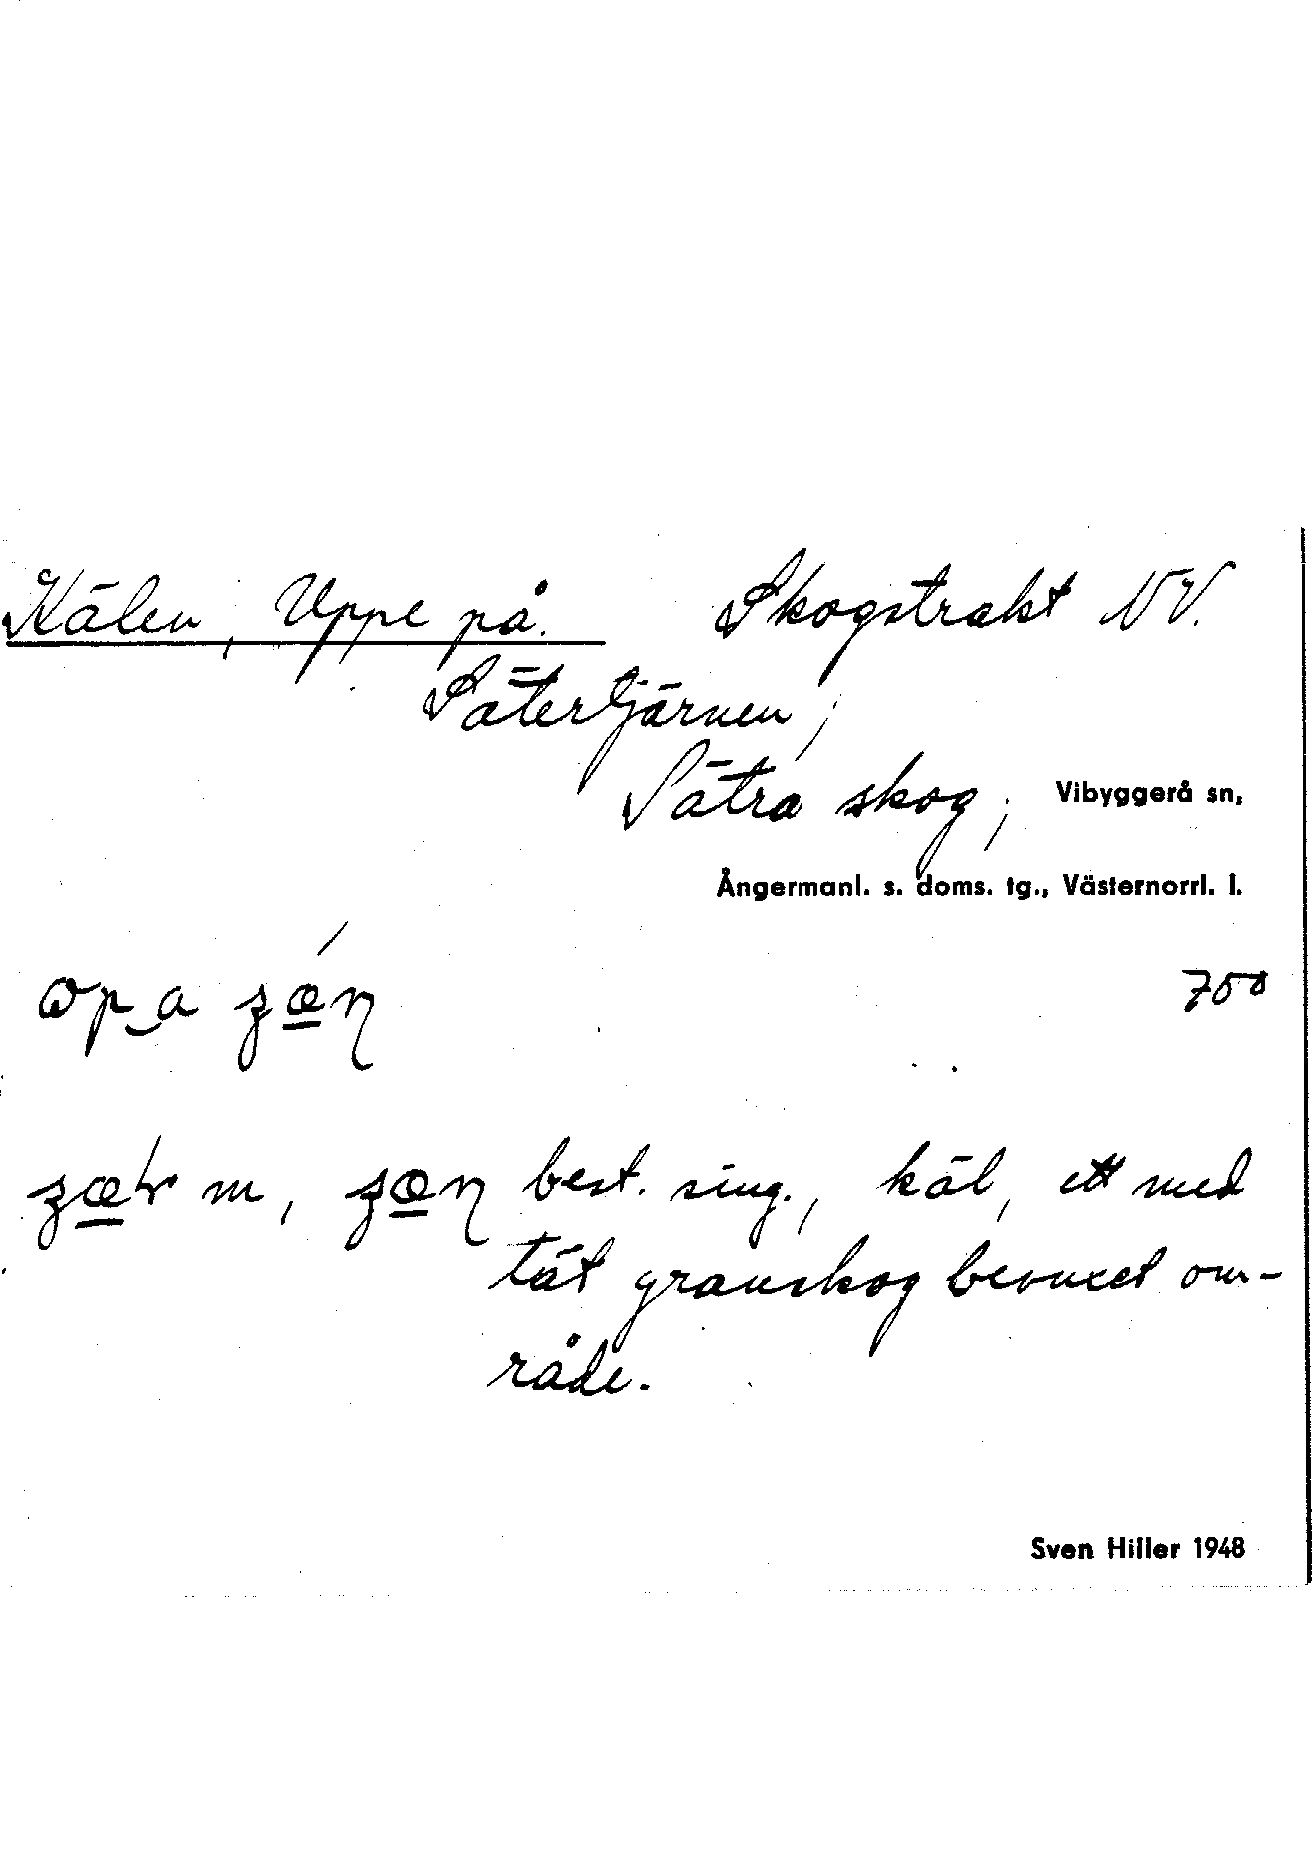 Kälen, Uppe på. Skogstrakt NV.
Sätertjärnen,
Sätra skog, Vibyggerå sn,
Ångermanl. s. doms. tg., Västernorrl. l.
700
m, best. sing., käl, ett med
tät granskog bevuxet om-
råde.
Sven Hiller 1948